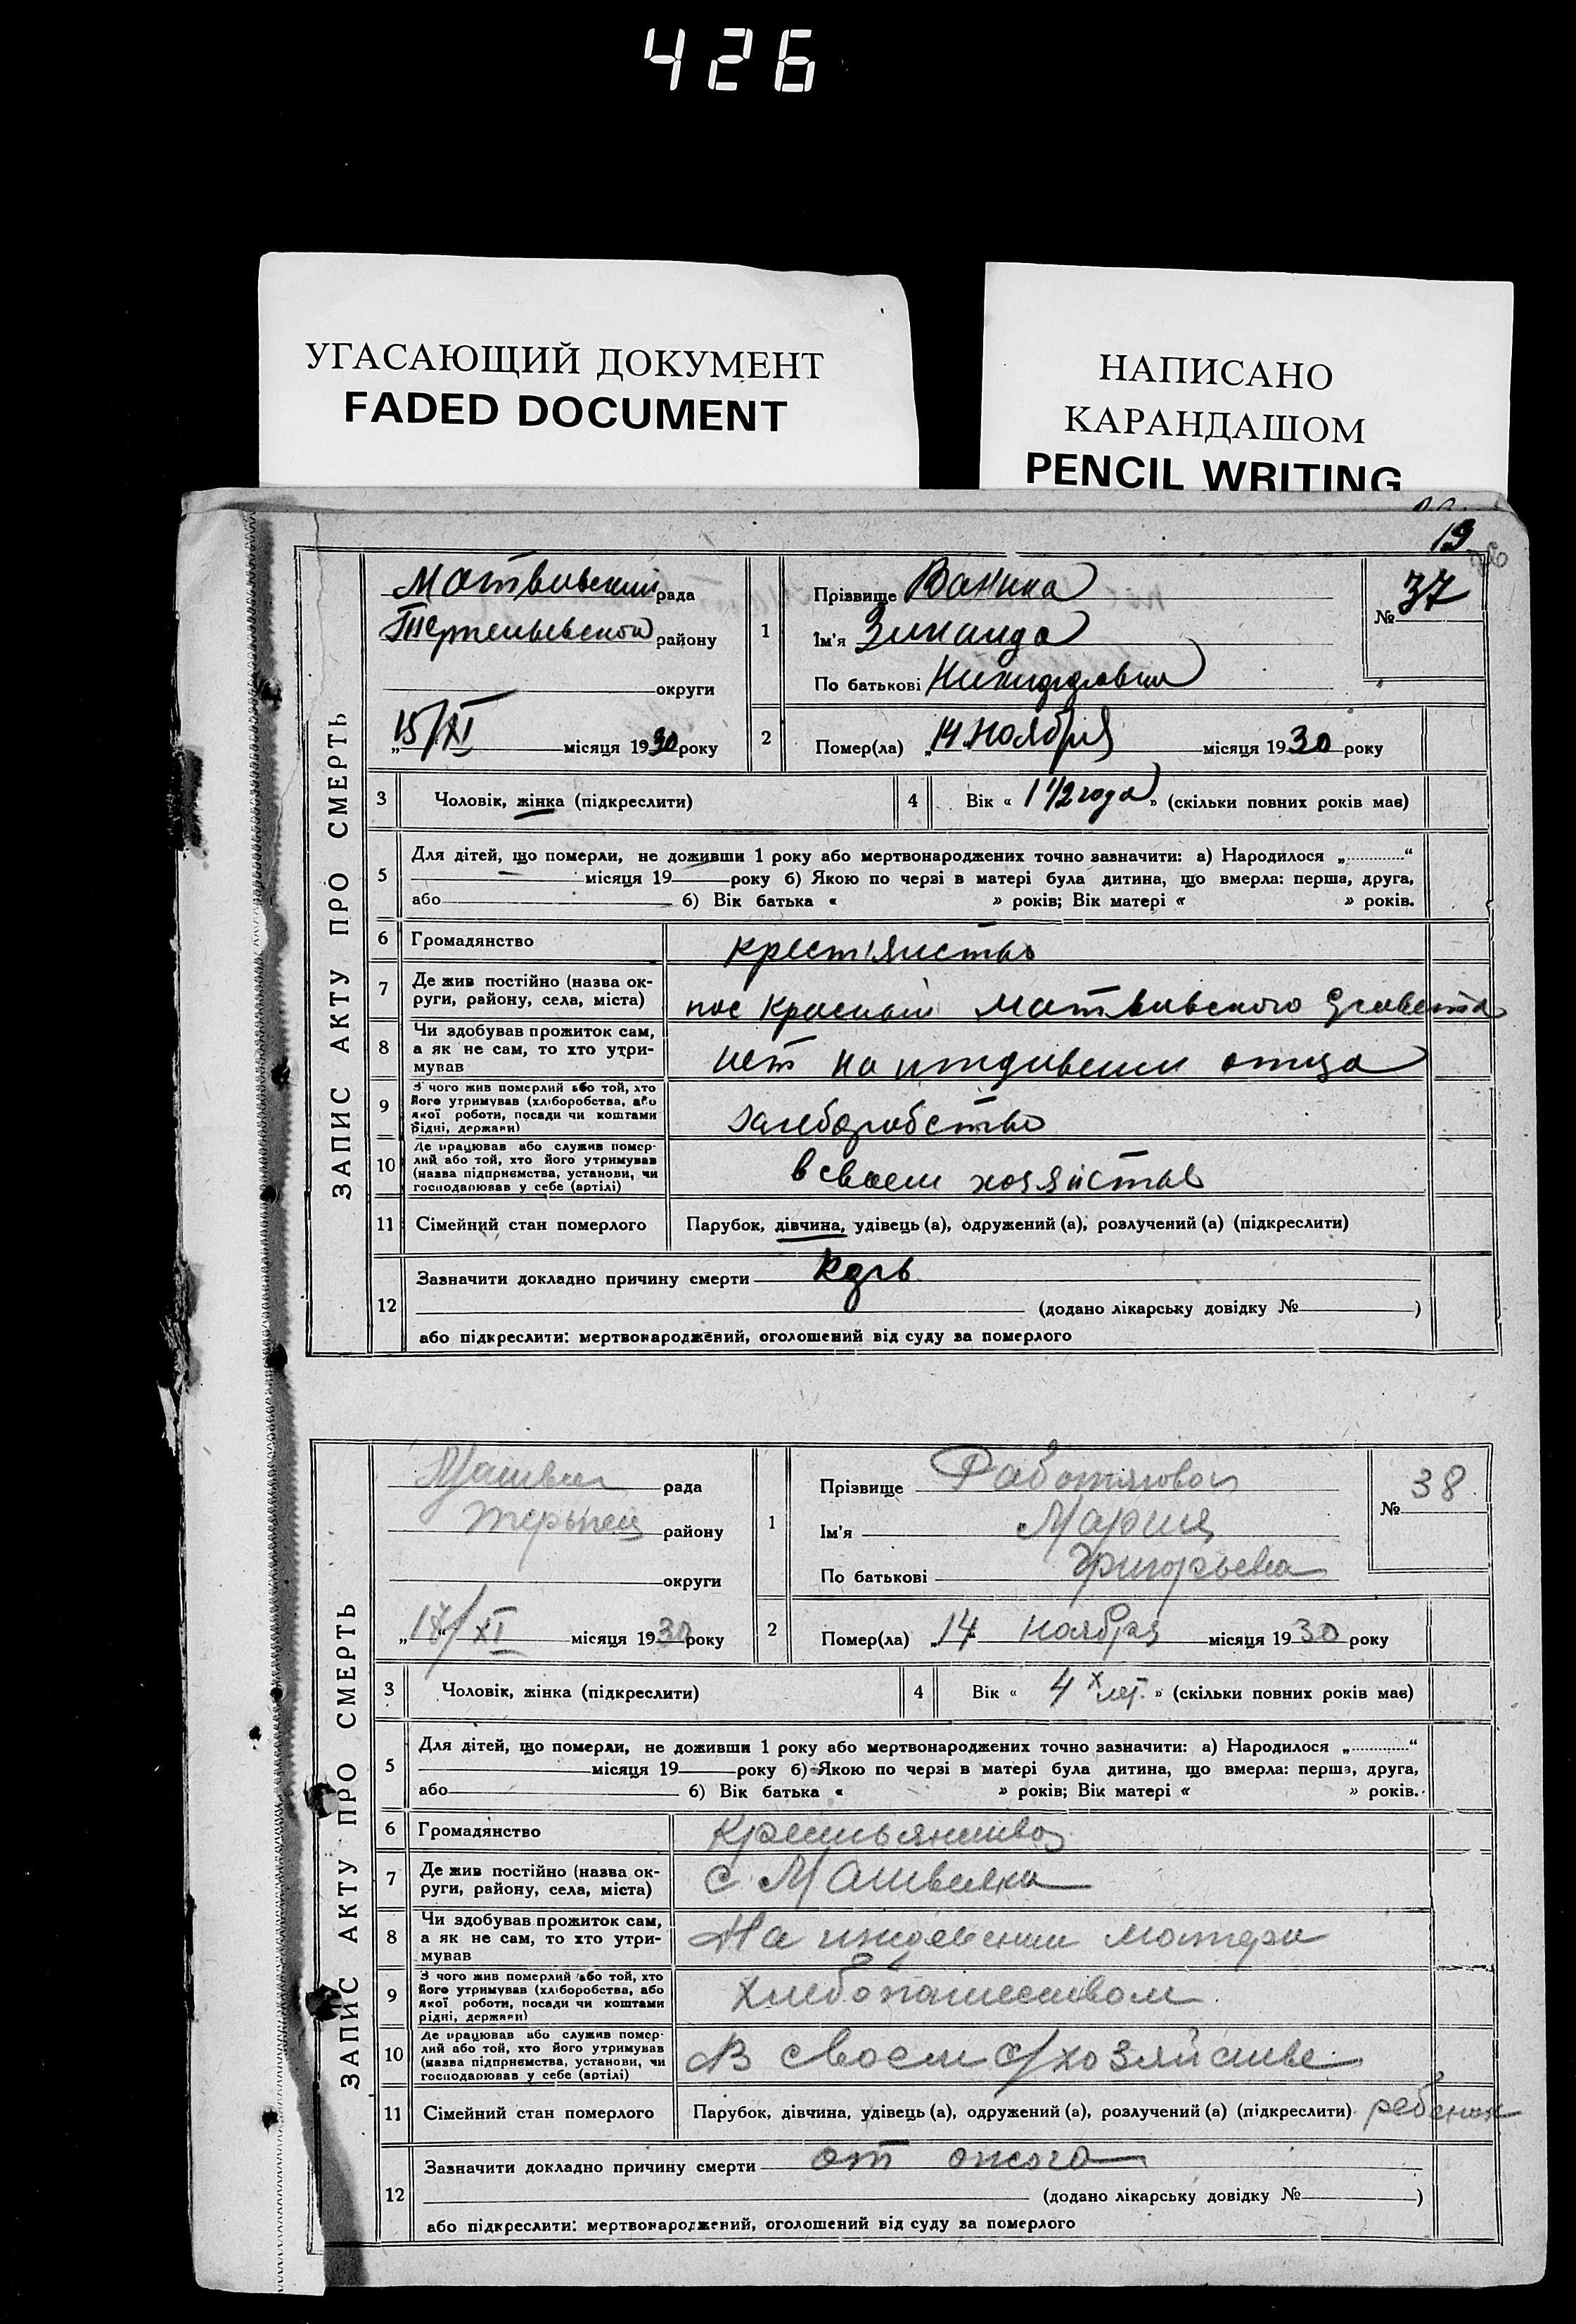 426
УГАСАЮЩИЙ ДОКУМЕНТ
FADED DOCUMENT
НАПИСАНО
КАРАНДАШОМ
PENCIL WRITING
19
ЗАПИС АКТУ ПРО СМЕРТЬ
рада
району
округи
„15/XI місяця 1930 року
1
Прізвище Ванина
Ім'я Зинаида
По батькові
№ 37
2
Помер(ла) „14 ноября місяця 1930 року
3
Чоловік, жінка (підкреслити)
4
Вік « 1 1/2 года » (скільки повних років має)
5
Для дітей, що померли, не доживши 1 року або мертвонароджених точно зазначити: а) Народилося „............“
місяця 19 року б) Якою по черзі в матері була дитина, що вмерла: перша, друга,
або б) Вік батька « » років; Вік матері « » років.
6
Громадянство
7
Де жив постійно (назва ок-
руги, району, села, міста)
пос Красный
8
Чи здобував прожиток сам,
а як не сам, то хто утри-
мував
нет на иждивении отца
9
З чого жив померлий або той, хто
його утримував (хліборобства, або
якої роботи, посади чи коштами
рідні, держави)
10
Де працював або служив помер-
лий або той, хто його утримував
(назва підприємства, установи, чи
господарював у себе (артілі)
в своем
11
Сімейний стан померлого
Парубок, дівчина, удівець (а), одружений (а), розлучений (а) (підкреслити)
12
Зазначити докладно причину смерти
(додано лікарську довідку № )
або підкреслити: мертвонароджений, оголошений від суду за померлого
ЗАПИС АКТУ ПРО СМЕРТЬ
рада
району
округи
/XI місяця 1930 року
1
Прізвище
Ім'я Мария
По батькові Григорьевна
№ 38
2
Помер(ла) „14 ноября місяця 1930 року
3
Чоловік, жінка (підкреслити)
4
Вік « 4х лет » (скільки повних років має)
5
Для дітей, що померли, не доживши 1 року або мертвонароджених точно зазначити: а) Народилося „............“
місяця 19 року б) Якою по черзі в матері була дитина, що вмерла: перша, друга,
або б) Вік батька « » років; Вік матері « » років.
6
Громадянство
7
Де жив постійно (назва ок-
руги, району, села, міста)
с. Матвеевка
8
Чи здобував прожиток сам,
а як не сам, то хто утри-
мував
На иждевении матери
9
З чого жив померлий або той, хто
його утримував (хліборобства, або
якої роботи, посади чи коштами
рідні, держави)
Хлебопашеством
10
Де працював або служив помер-
лий або той, хто його утримував
(назва підприємства, установи, чи
господарював у себе (артілі)
В своем с/хозяйстве
11
Сімейний стан померлого
Парубок, дівчина, удівець (а), одружений (а), розлучений (а) (підкреслити) ребенок
12
Зазначити докладно причину смерти от ожога
(додано лікарську довідку № )
або підкреслити: мертвонароджений, оголошений від суду за померлого